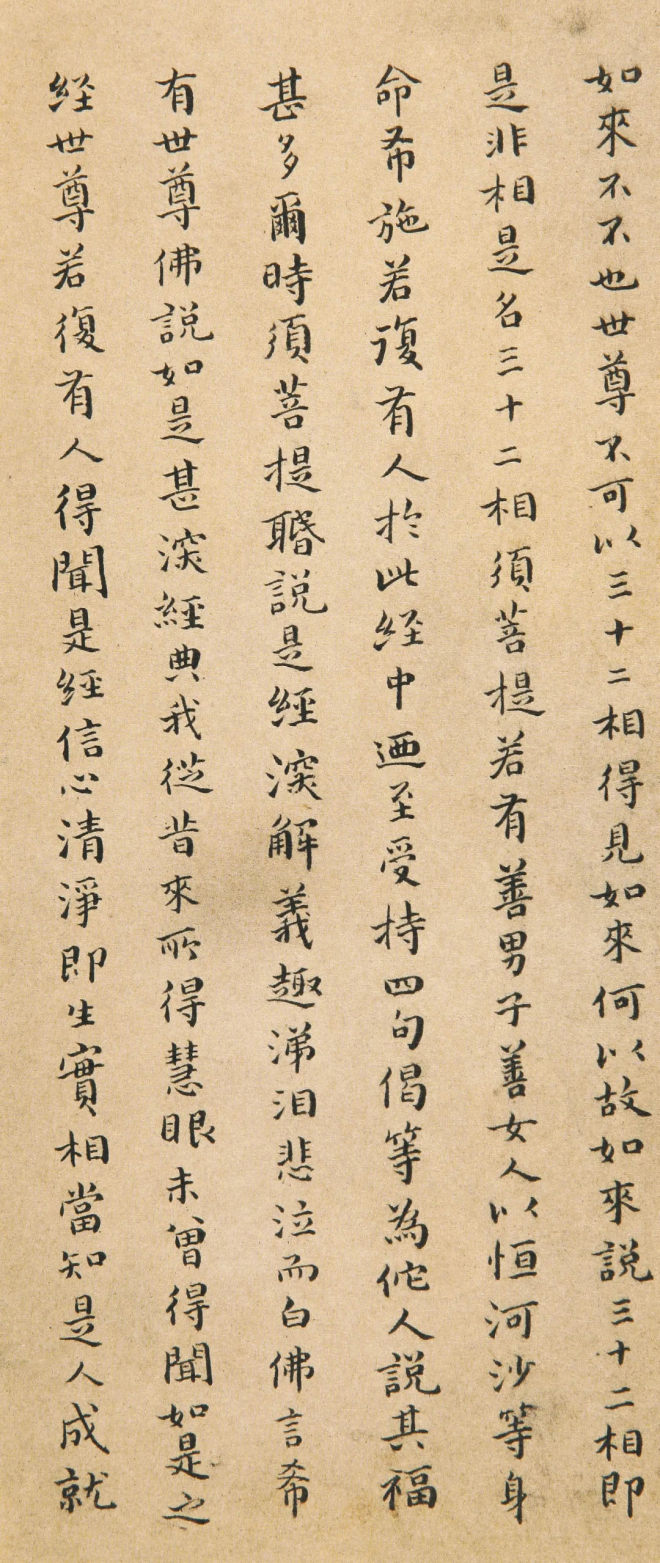 如來不不也世尊不可以三十二相得見如來何以故如來說三十二相即
是非相是名三十二相須菩提若有善男子善女人以恒河沙等身
命布施若復有人於此經中迺至受持四句偈等為佗人說其福
甚多爾時須菩提䎽說是經深解義趣涕泪悲泣而白佛言希
有世尊佛說如是甚深經典我從昔來所得慧眼未曾得聞如是之
經世尊若復有人得聞是經信心清淨即生實相當知是人成就